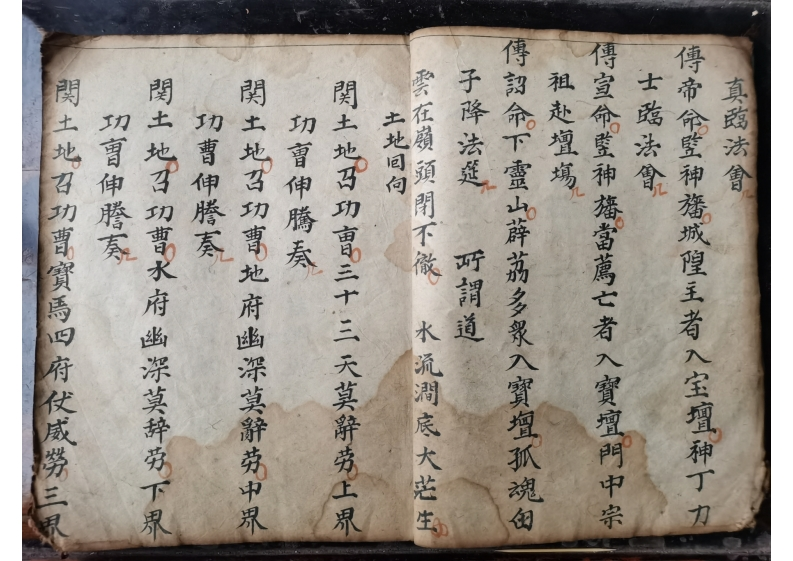 真臨法會
傳帝命監神旛城隍主者入宝壇神丁力
士臨法會
傳宣命監神旛當薦亡者入寶壇門中宗
祖赴壇場
傳詔命下靈山薜荔多衆入寶壇孤魂由
子降法筵　所謂道
雲在嶺頭閉不徹　水流澗底大茫生
土地回向
関土地召功曹三十三天莫辭劳上界
功曹伸騰奏
関土地召功曹地府幽深莫辭劳中界
功曹伸謄奏
関土地召功曹水府幽深莫辞劳下界
功曹伸謄奏
関土地召功曹寶馬四府伏威勞三界